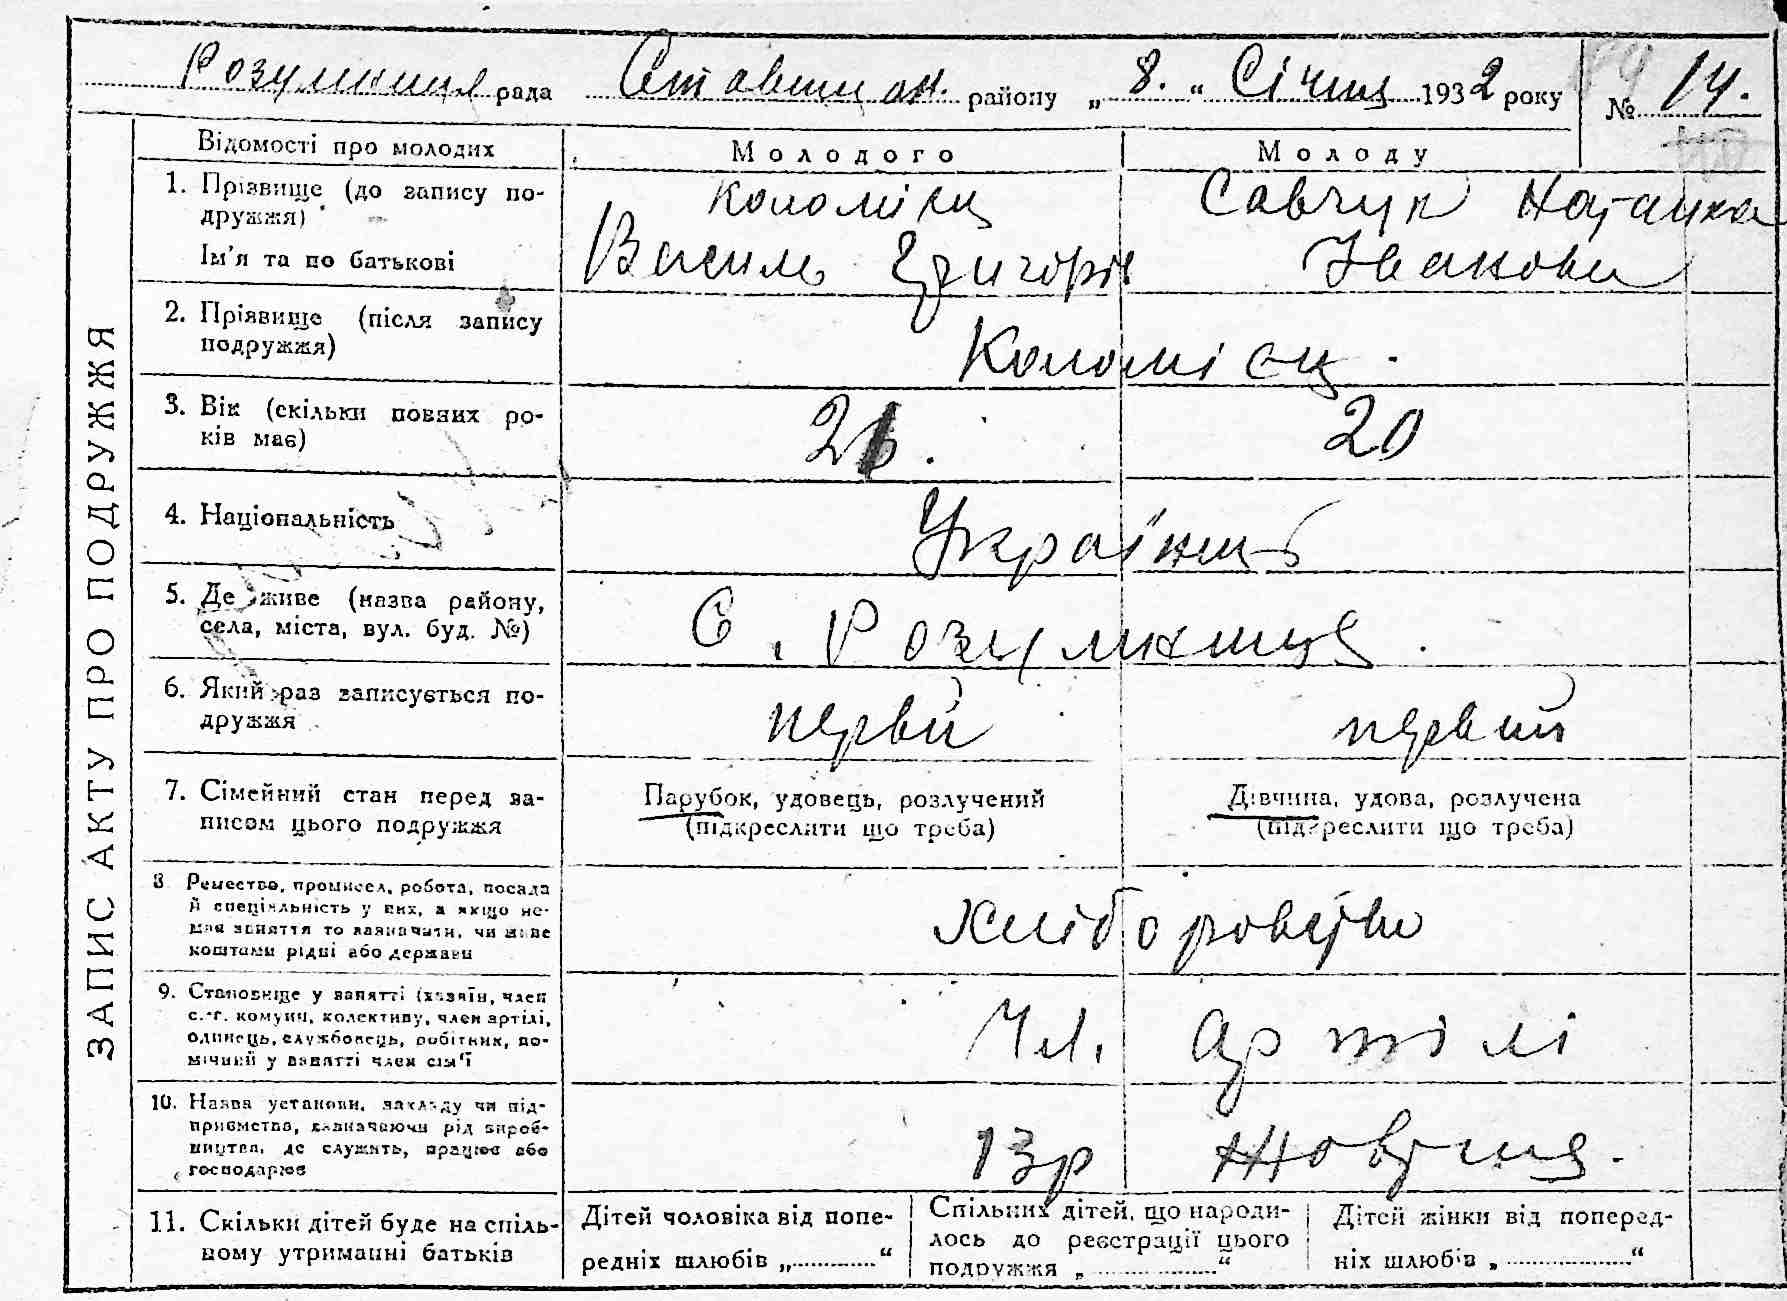 Розумниця рада Ставищан. району „ 8. “ Січня 1932 року № 14.
ЗАПИС АКТУ ПРО ПОДРУЖЖЯ
Відомості про молодих
Молодого
Молоду
1. Прізвище (до запису по-
дружжя)
Ім'я та по батькові
Коломієц
Василь Григорів
Савчук Наталка
Іванови
2. Прізвище (після запису
подружжя)
Коломієц.
3. Вік (скільки повних ро-
ків має)
20
4. Національність
Українць
5. Де живе (назва району,
села, міста, вул. буд. №)
С. Розумниця.
6. Який раз записується по-
дружжя
перви
первий
7. Сімейний стан перед за-
писом цього подружжя
Парубок, удовець, розлучений
(підкреслити що треба)
Дівчина, удова, розлучена
(підкреслити що треба)
8 Ремество, промисел, робота, посада
й спеціяльність у них, а якщо не-
має заняття то зазначити, чи живе
коштами рідні або держави
Хліборобство
9. Становище у занятті (хазяїн, член
с.-г. комуни, колективу, член артілі,
одинець, службовець, робітник, по-
мічний у занятті член сім'ї
Чл. Артілі
10. Назва установи, закладу чи під-
приємства, зазначаючи рід вироб-
ництва, де служить, працює або
господарює
13р Жовтня.
11. Скільки дітей буде на спіль-
ному утриманні батьків
Дітей чоловіка від попе-
редніх шлюбів „ “
Спільних дітей, що народи-
лось до реєстрації цього
подружжя „ “
Дітей жінки від поперед-
ніх шлюбів „ “